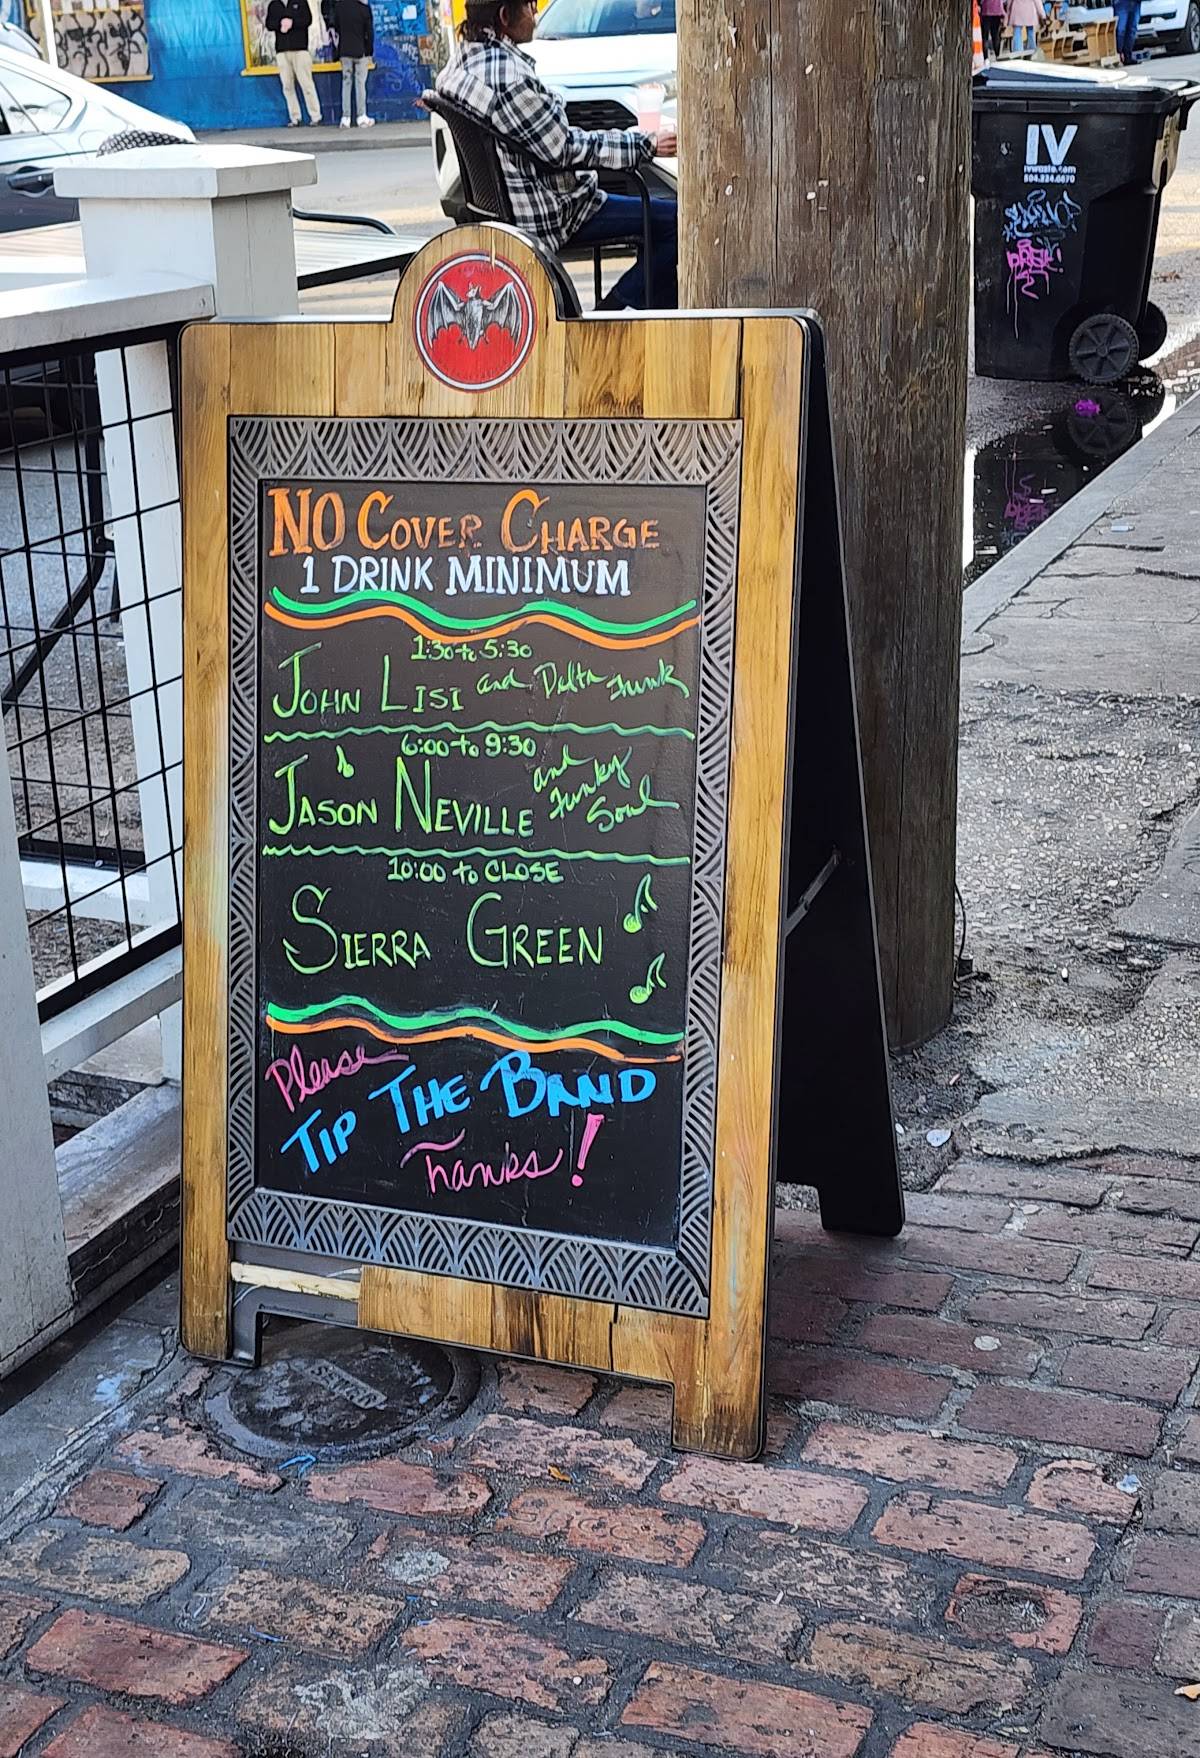 IV
ivwaste.com
504.224.6670
NO COVER CHARGE
1 DRINK MINIMUM
1:30 to 5:30
JOHN LISI and Delta Funk
6:00 to 9:30
JASON NEVILLE and Funky Soul
10:00 to CLOSE
SIERRA GREEN
Please
TIP THE BAND
Thanks!